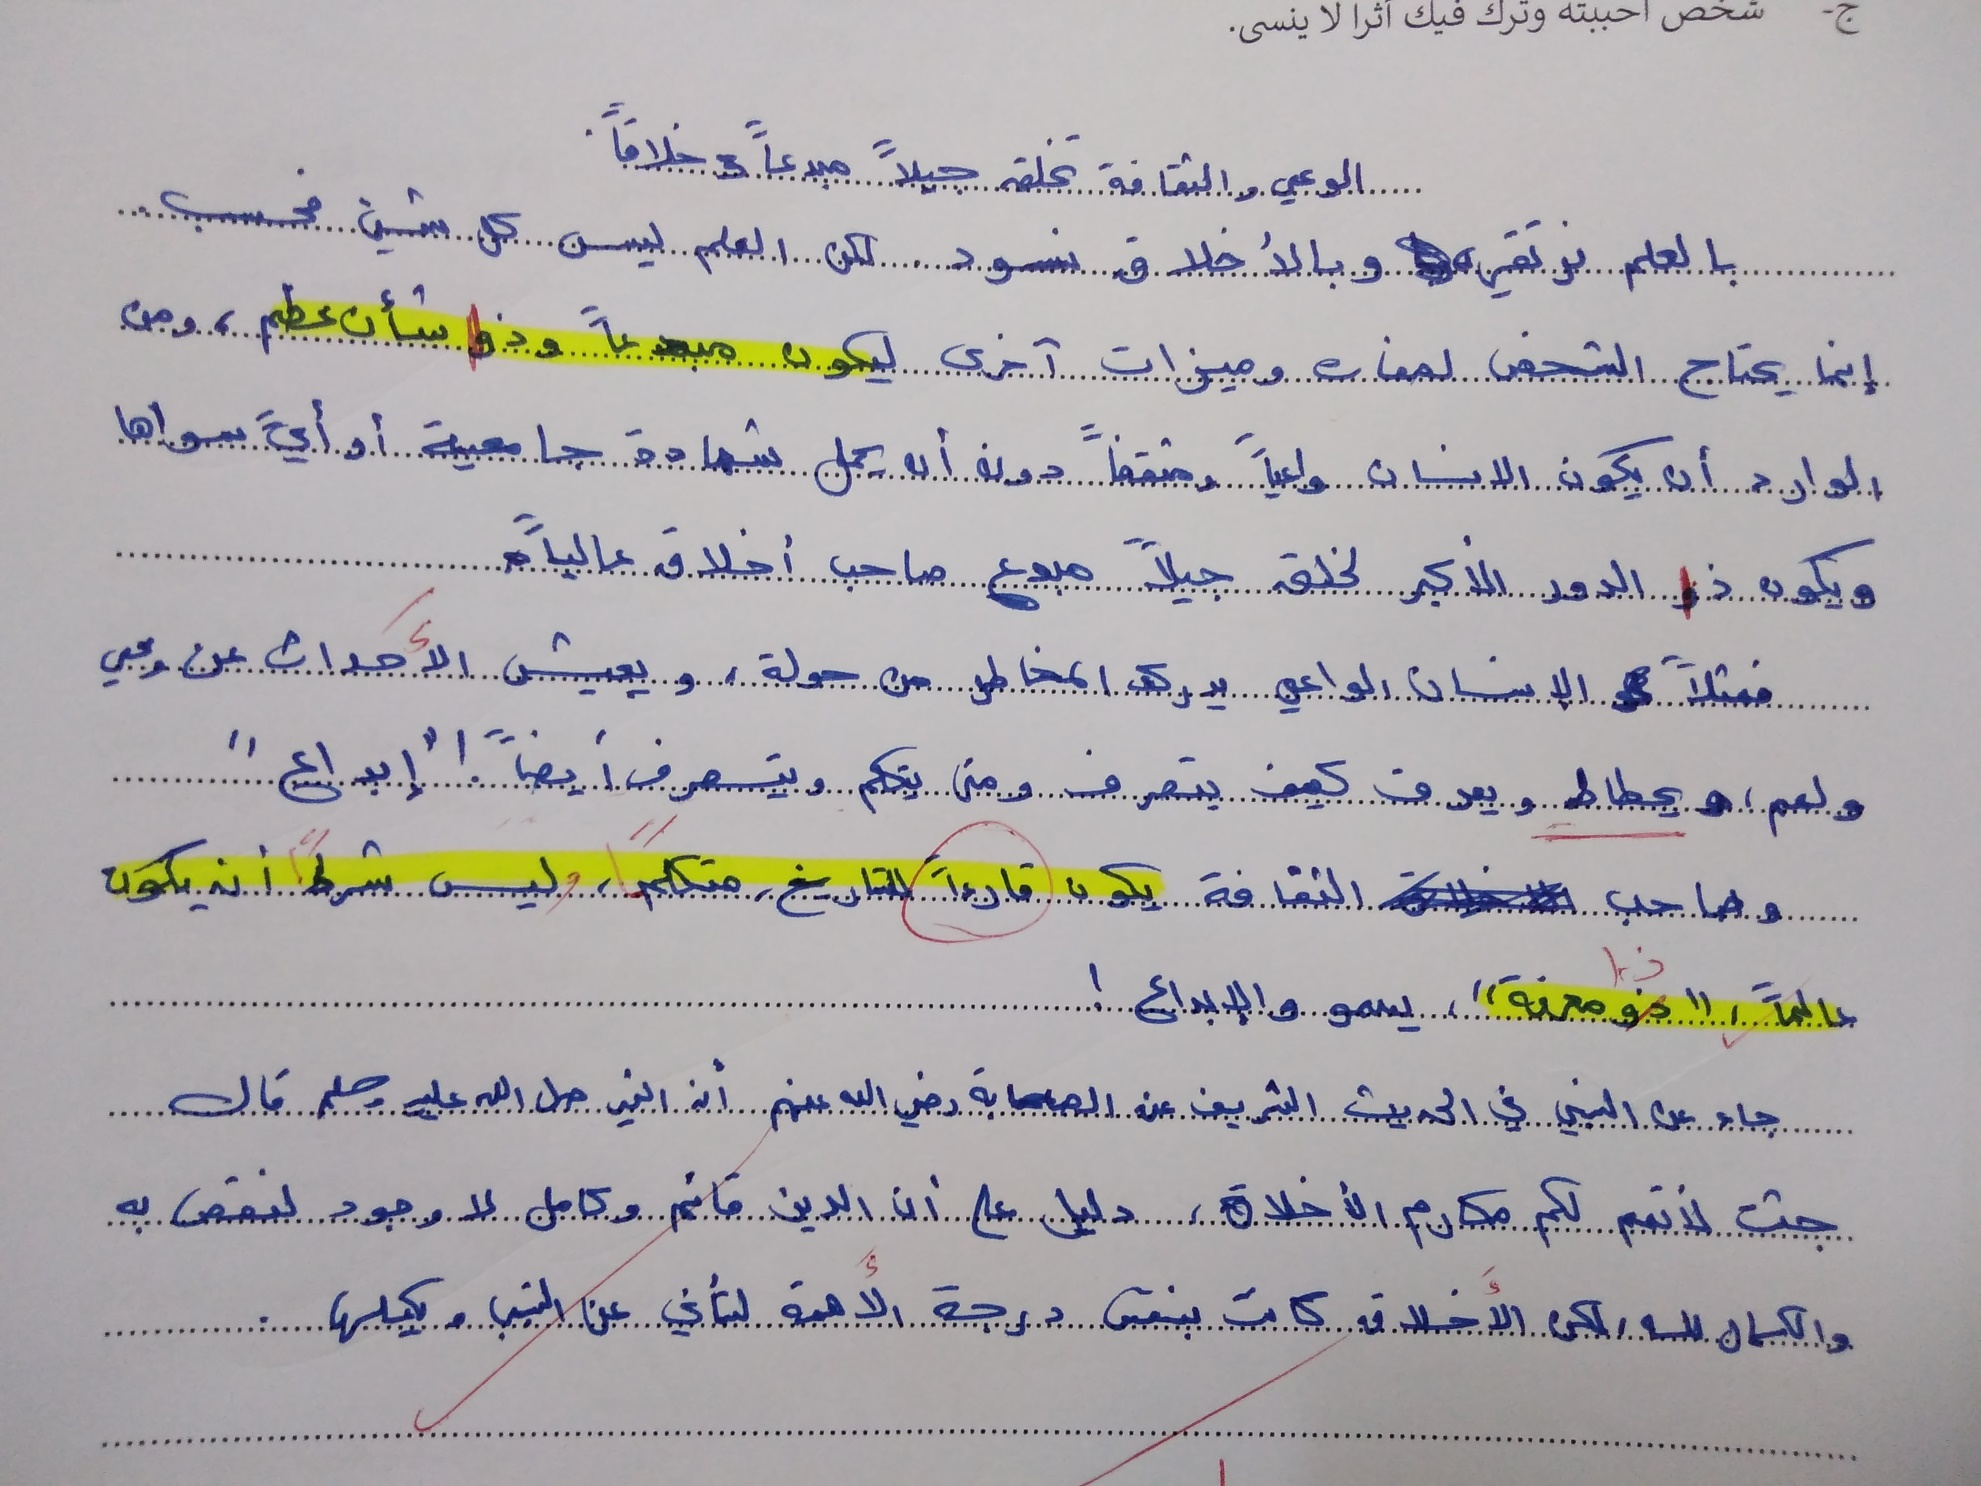 ج- شخص أحببته وترك فيك أثرا لا ينسى.
الوعي والثقافة تخلق جيلاً مبدعاً و خلاقاً.
بالعلم نرتقي، وبالأخلاق نسود. لكن العلم ليس كل شيئ فحسب
إنما يحتاج الشخص لصفات وميزات آخرى ليكون مبدعاً وذوا شأن عظم، ومن
الوارد أن يكون الانسان واعياً ومثقفاً دون أن يحمل شهادة جامعية أو أيَّ سواها
ويكون ذو الدور الأكبر لخلق جيلاً مبدع صاحب أخلاق عالياً
فمثلاً الإنسان الواعي يدرك المخاطر من حولة، ويعيش الأحداث عن وعي
وفهم، و يحطاط ويعرف كيف يتصرف ومتى يتكلم ويتصرف أيضاً! "إبداع"
وصاحب الثقافة يكون قارءاً للتاريخ، متكلم، وليس شرط أن يكون
ذا
عالماً، "ذو معرفة"، يسمو والإبداع!
جاء عن النبي في الحديث الشريف عن الصحابة رضي الله عنهم أن النبي صلى الله عليه وسلم قال
جئت لأتمم لكم مكارم الأخلاق، دليل على أن الدين قائم وكامل لا وجود لنقص به
والكمال لله، لكن الأخلاق كانت بنفس درجة الأهمة لتأتي عن النبي ويكملها.